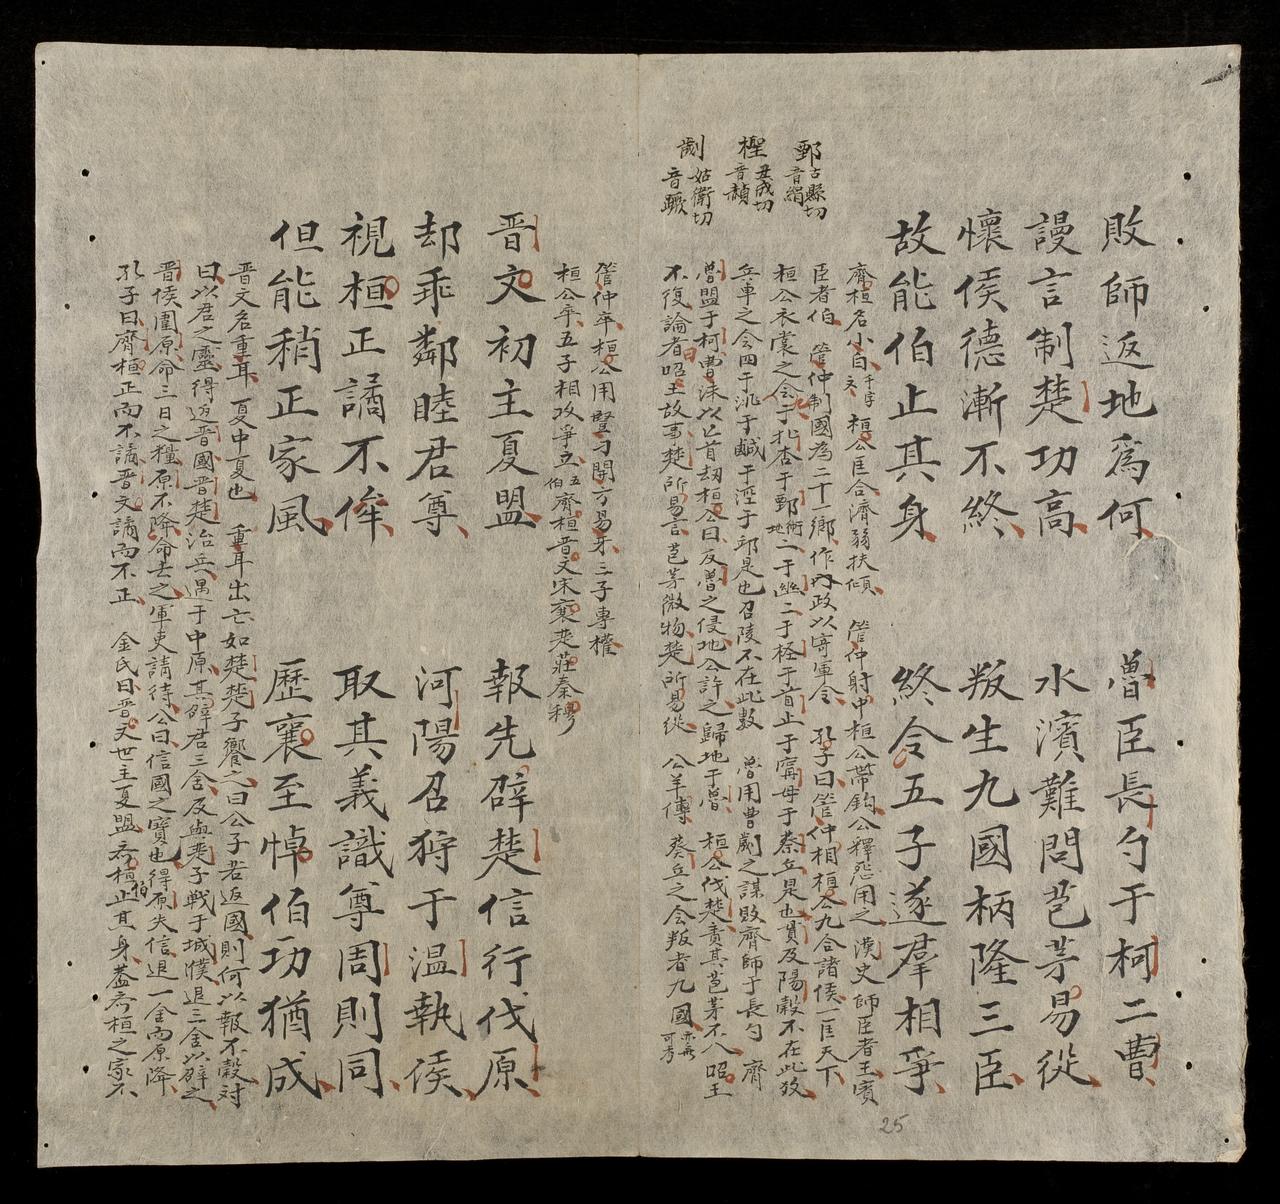 鄄 古縣切 音絹
檉 丑成切 音赬
劌 姑衛切 音蹶
敗師返地爲何 魯臣長勺于柯二曹
謾言制楚功高 水濱難問苞茅易從
懷侯德漸不終 叛生九國柄隆三臣
故能伯止其身 終令五子遂羣相爭
齊桓名小白 桓公匡合濟弱扶傾 管仲射中桓公帶鈎公釋怨用之 漢史師臣者王賓
臣者伯 管仲制國為二十一鄉作內政以寄軍令 孔子曰管仲相桓公九合諸侯一匡天下
桓公衣裳之會于北杏于鄄衛地二于幽二于檉于首止于甯母于葵丘是也貫及陽穀不在此數
兵車之會四于洮于鹹于淮于邱是也召陵不在此數 魯用曹劌之謀敗齊師于長勺 齊
魯盟于柯曹沬以匕首刼桓公曰反魯之侵地公許之歸地于魯 桓公伐楚責其苞茅不入昭王
不復論者曰昭王故事楚所易言苞茅微物楚所易從 公羊傳 葵丘之會叛者九國
管仲卒桓公用豎刁開方易牙三子專權
桓公卒五子相攻爭立 五伯齊桓晋文宋襄楚莊秦穆
晋文初主夏盟 報先辟楚信行伐原
却乖鄰睦君尊 河陽召狩于温執侯
視桓正譎不侔 取其義識尊周則同
但能稍正家風 歷襄至悼伯功猶成
晋文名重耳 夏中夏也 重耳出亡如楚楚子饗之曰公子若返國則何以報不穀対
曰以君之靈得返晋國晋楚治兵遇于中原其辟君三舍及與楚子戰于城濮退三舍以辟之
晋侯圍原命三日之糧原不降命去之軍吏請待公曰信國之寶也得原失信退一舍而原降
孔子曰齊桓正而不譎晋文譎而不正 金氏曰晋文世主夏盟齐桓伯止其身蓋齐桓之家不
25